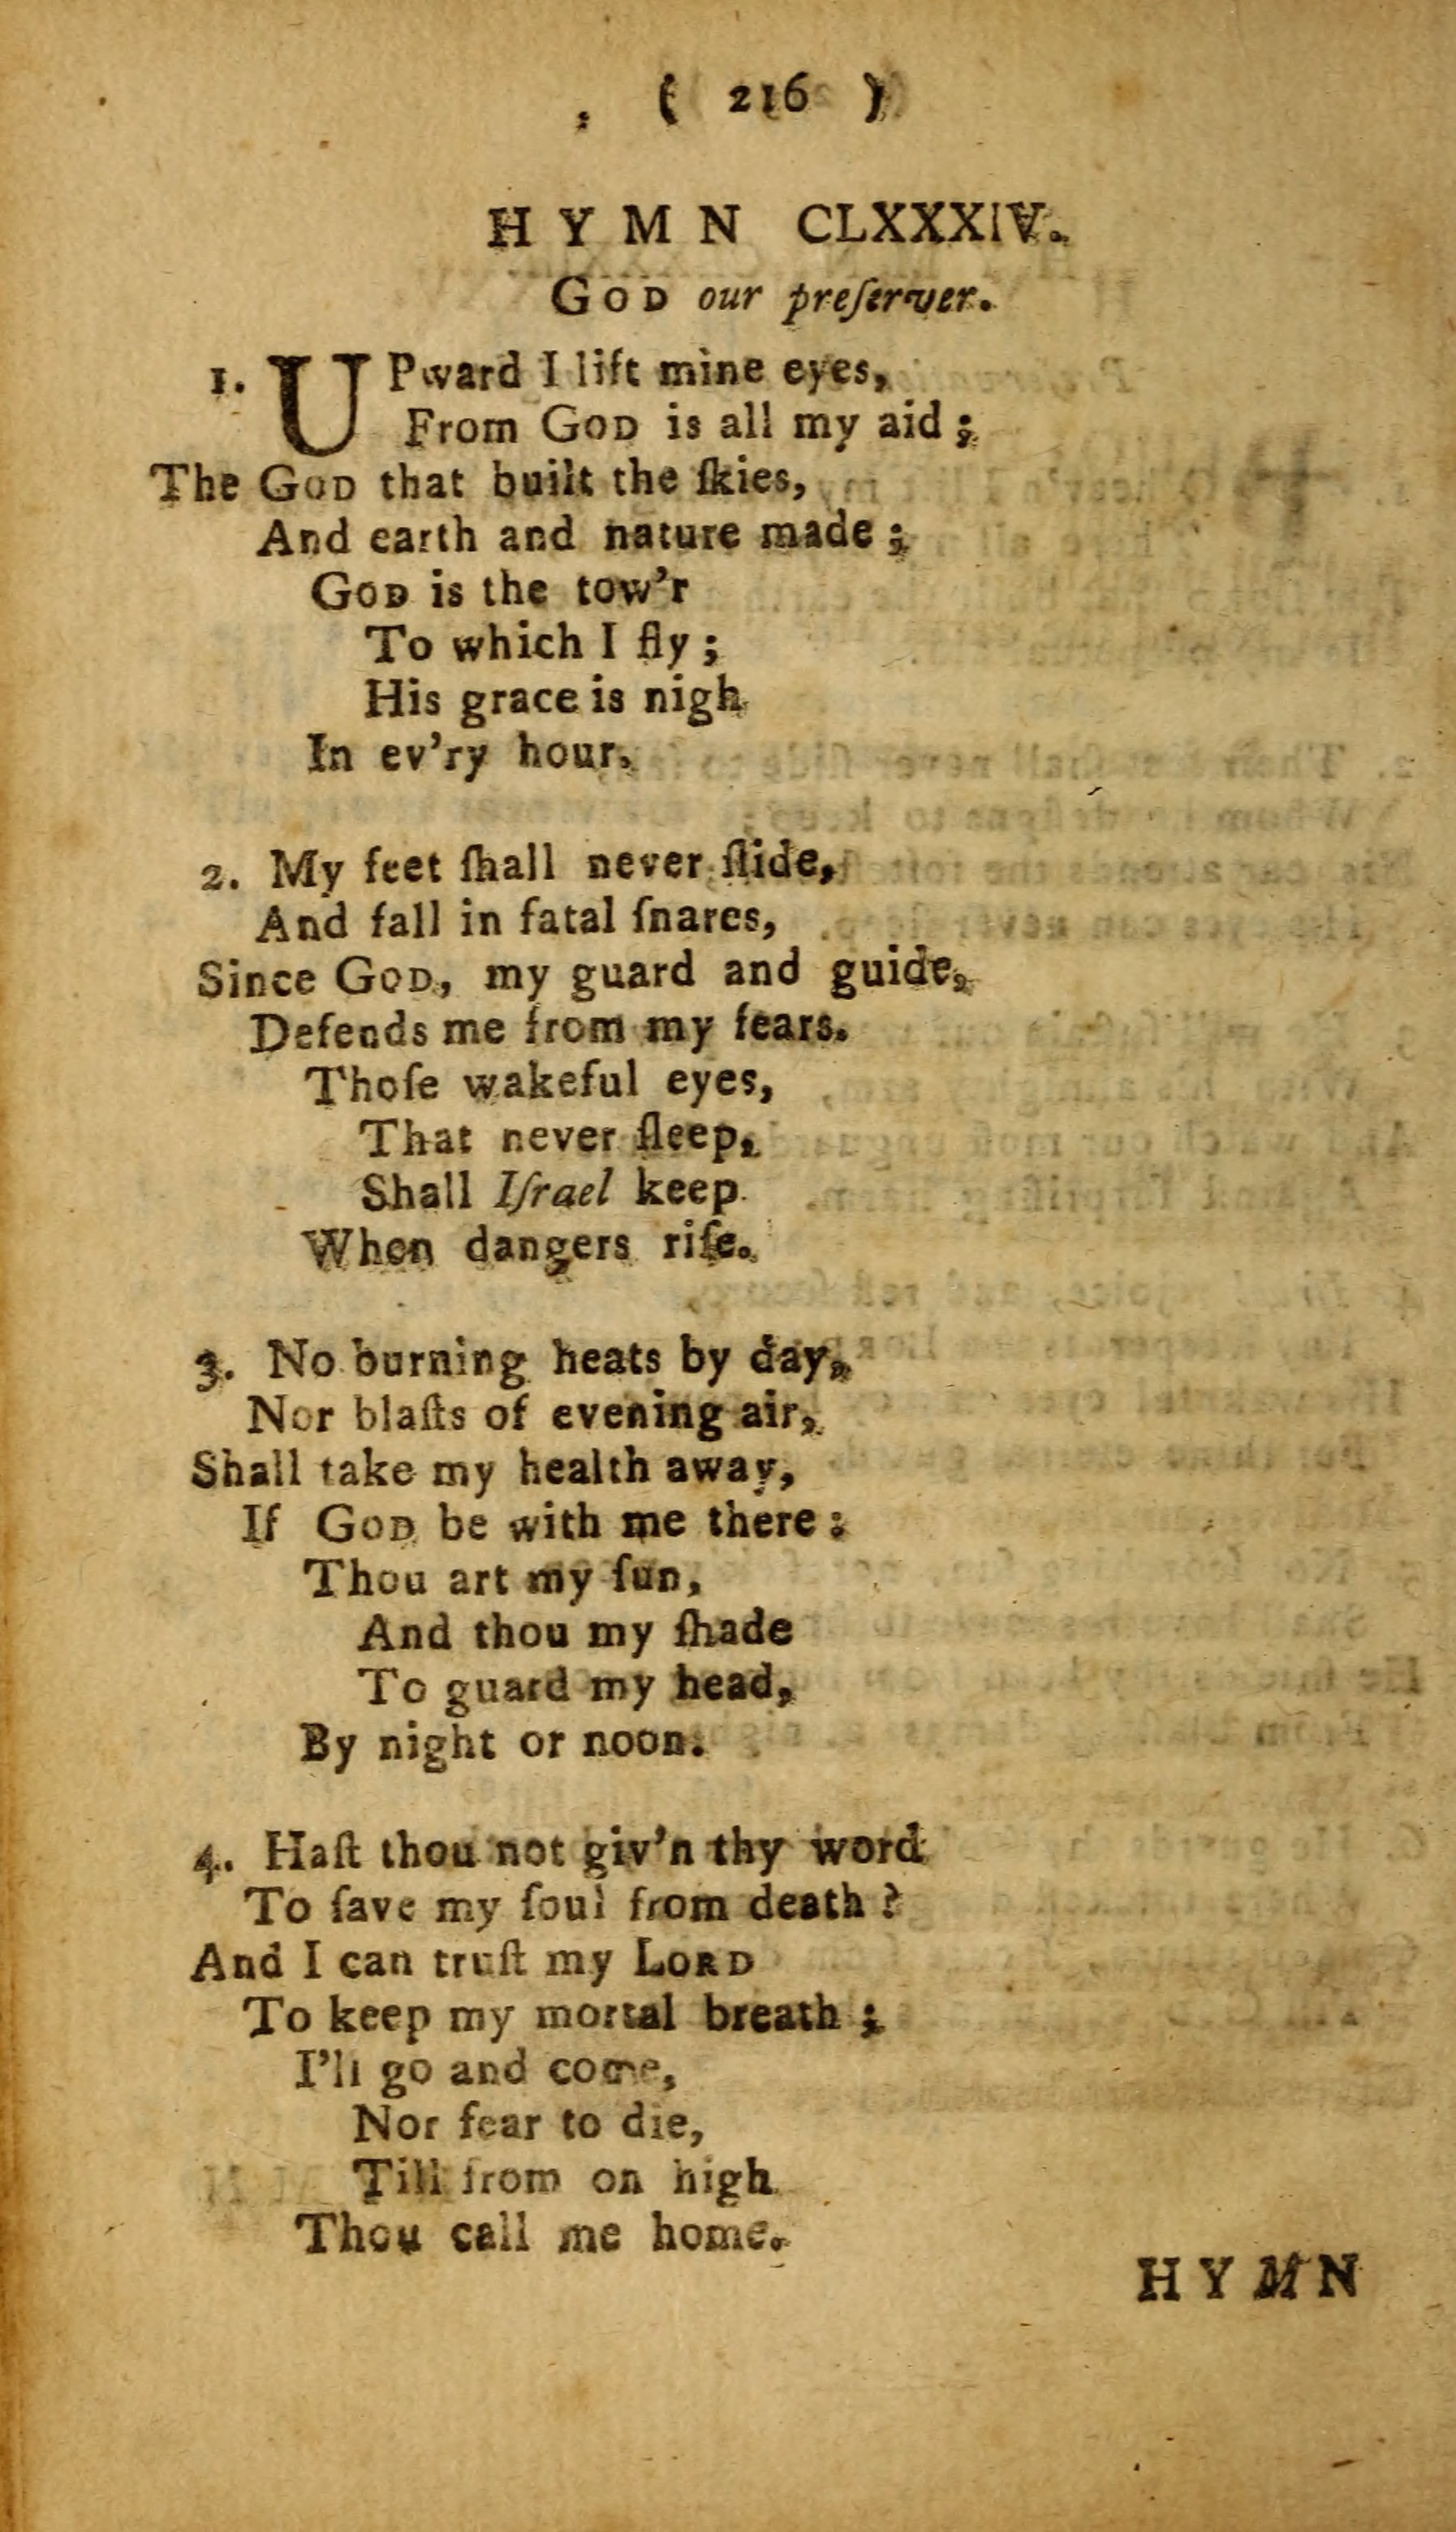 ( 216 )
HYMN CLXXXIV.
GOD our preſerver.
1. UPward I lift mine eyes,
From GOD is all my aid;
The GOD that built the ſkies,
And earth and nature made;
GOD is the tow'r
To which I fly;
His grace is nigh
In ev'ry hour.
2. My feet ſhall never ſlide,
And fall in fatal ſnares,
Since GOD, my guard and guide,
Defends me from my fears.
Thoſe wakeful eyes,
That never ſleep,
Shall Iſrael keep
When dangers riſe.
3. No burning heats by day,
Nor blaſts of evening air,
Shall take my health away,
If GOD be with me there:
Thou art my ſun,
And thou my ſhade
To guard my head,
By night or noon.
4. Haſt thou not giv'n thy word
To ſave my ſoul from death?
And I can truſt my LORD
To keep my mortal breath;
I'll go and come,
Nor fear to die,
Till from on high
Thou call me home.
HYMN